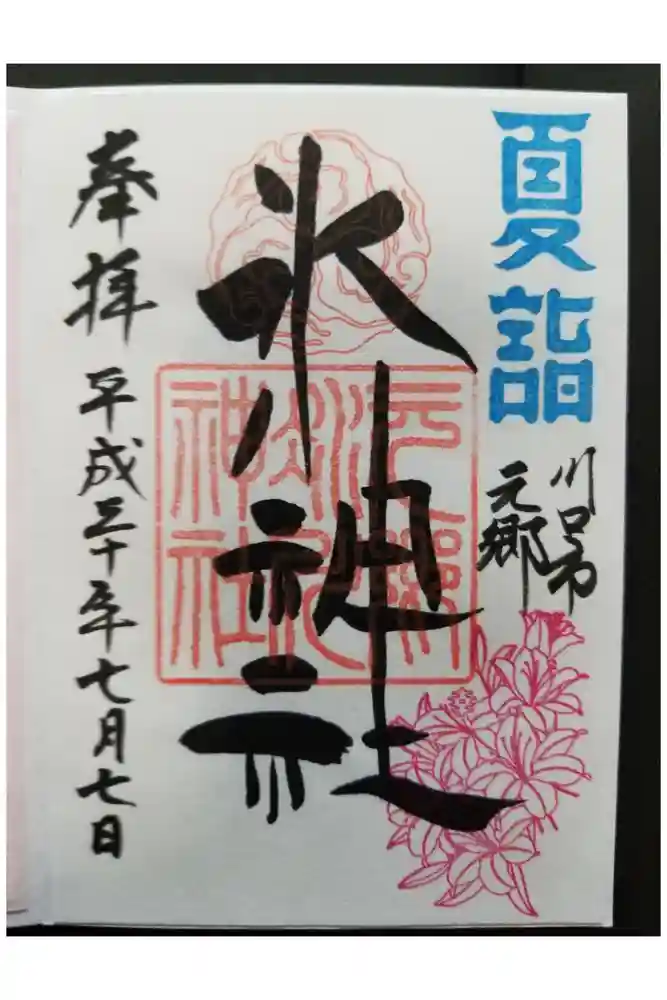 夏詣
川口市
元郷
氷川神社
元郷
氷川
神社
奉拝 平成三十年七月七日